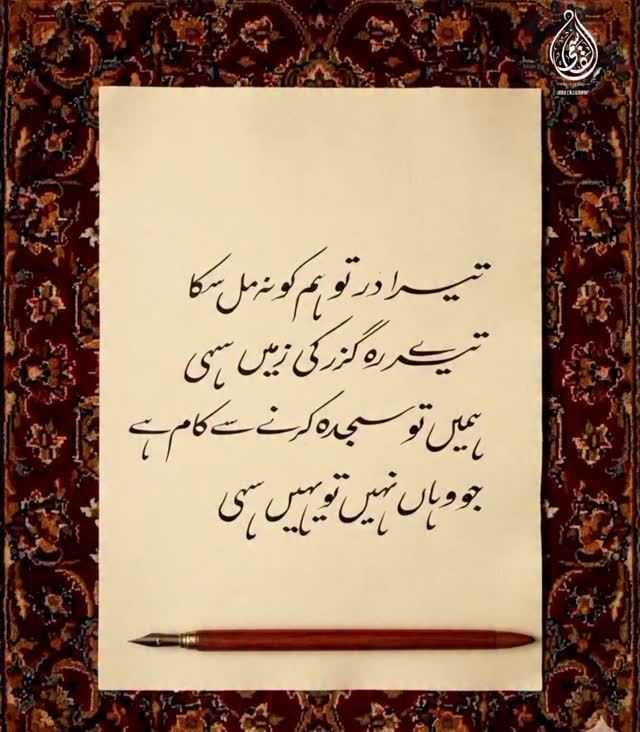 URDU CALLIGRAPHY
تیرا در تو ہم کو نہ مل سکا
تیرے رہ گزر کی زمیں سہی
ہمیں تو سجدہ کرنے سے کام ہے
جو وہاں نہیں تو یہیں سہی